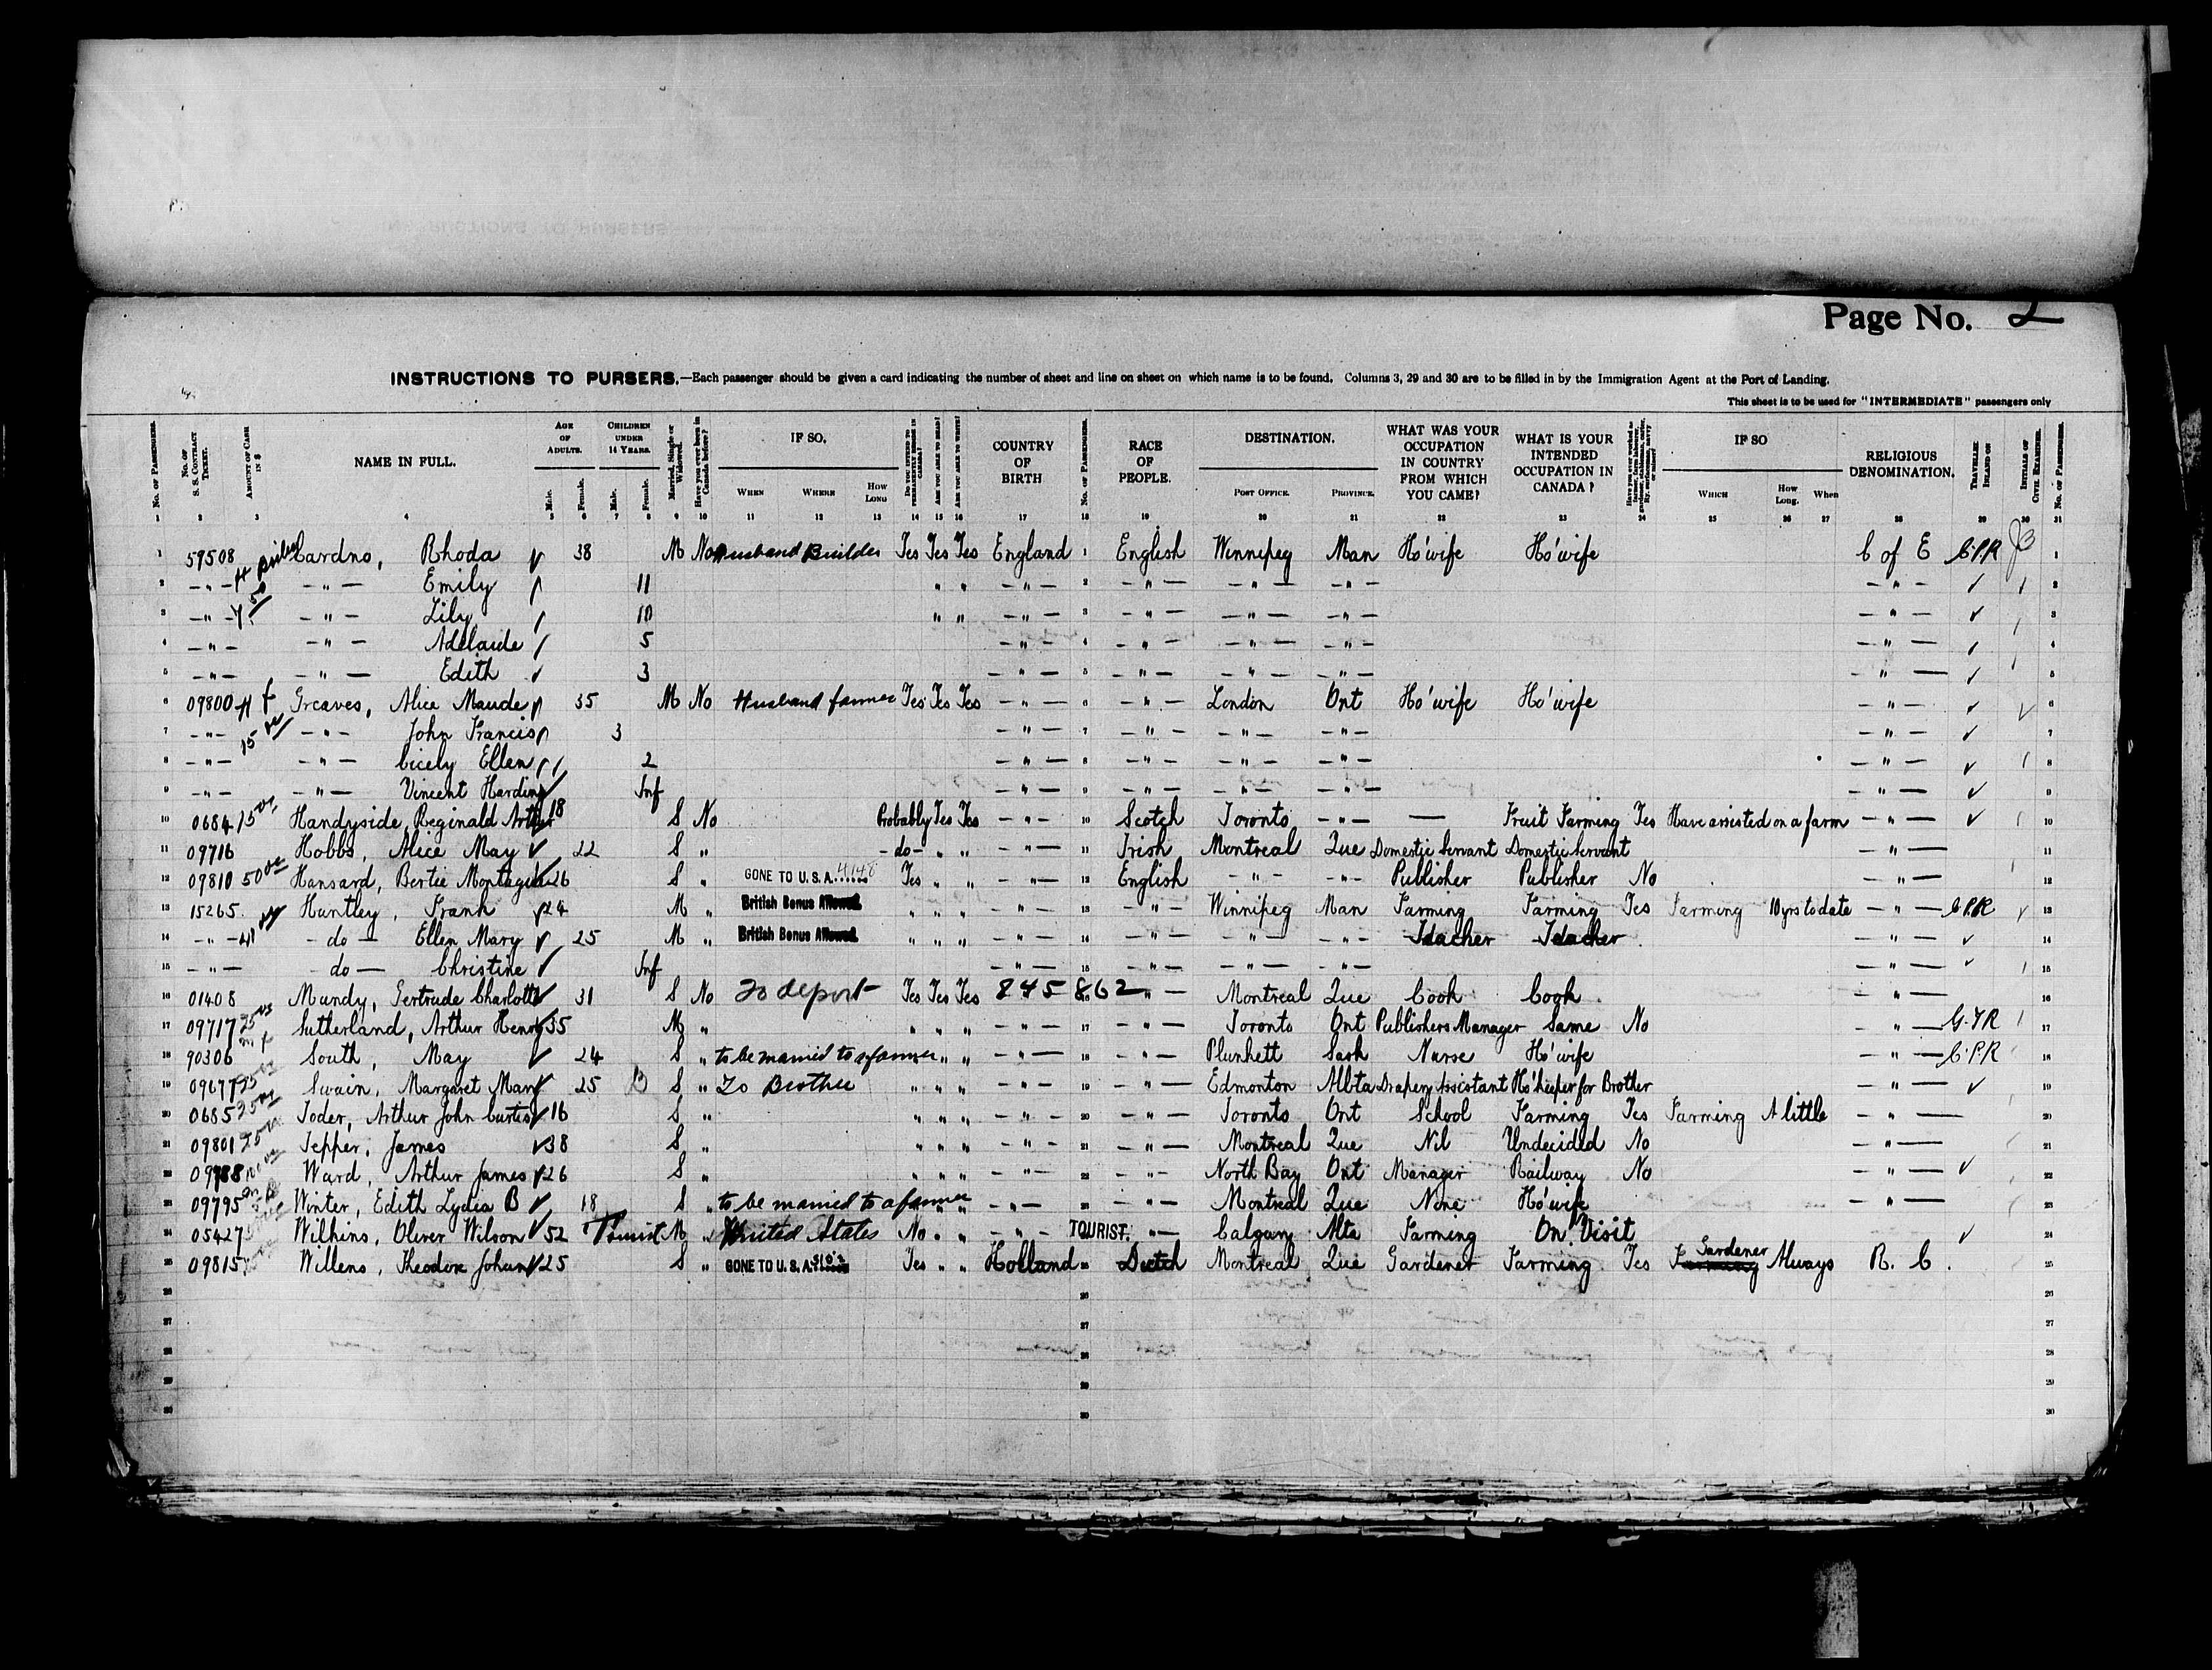 Page No. 2
INSTRUCTIONS TO PURSERS.—Each passenger should be given a card indicating the number of sheet and line on sheet on which name is to be found. Columns 3, 29 and 30 are to be filled in by the Immigration Agent at the Port of Landing.
This sheet is to be used for "INTERMEDIATE" passengers only
No. of Passengers. No. of S. S. Contract Ticket. Amount of Cash in $ NAME IN FULL. AGE OF ADULTS. Male. Female. CHILDREN UNDER 14 YEARS. Male. Female. Married, Single or Widowed. Have you ever been in Canada before? IF SO, WHEN WHERE How Long Do you intend to permanently reside in Canada? Are you able to read? Are you able to write? COUNTRY OF BIRTH No. of Passengers. RACE OF PEOPLE. DESTINATION. Post Office. Province. WHAT WAS YOUR OCCUPATION IN COUNTRY FROM WHICH YOU CAME? WHAT IS YOUR INTENDED OCCUPATION IN CANADA? IF SO WHICH How Long. When RELIGIOUS DENOMINATION. TRAVELLED INLAND ON INITIALS OF CIVIL EXAMINER. No. of Passengers.
1 2 3 4 5 6 7 8 9 10 11 12 13 14 15 16 17 18 19 20 21 22 23 24 25 26 27 28 29 30 31
1 59508 Cardno, Rhoda 38 M No Husband Builder Yes Yes Yes England 1 English Winnipeg Man Ho'wife Ho'wife C of E C.P.R 1
2 -"- -"- Emily 11 " " -"- 2 -"- -"- -"- -"- 2
3 -"- -"- Lily 10 " " -"- 3 -"- -"- -"- -"- 3
4 -"- Adelaide 5 -"- 4 -"- -"- -"- -"- 4
5 -"- -"- Edith 3 -"- 5 -"- -"- -"- -"- 5
6 09800 Greaves, Alice Maude 35 M No Husband farmer Yes Yes Yes -"- 6 -"- London Ont Ho'wife Ho'wife -"- 6
7 -"- 15 -"- John Francis 3 -"- 7 -"- -"- -"- -"- 7
8 -"- -"- Cicely Ellen 2 -"- 8 -"- -"- -"- -"- 8
9 -"- -"- Vincent Harding Inf -"- 9 -"- -"- -"- -"- 9
10 0684 Handyside, Reginald Arthur 18 S No Probably Yes Yes -"- 10 Scotch Toronto -"- — Fruit Farming Yes Have assisted on a farm -"- 10
11 09716 Hobbs, Alice May 22 S " -do- " " -"- 11 Irish Montreal Que Domestic Servant Domestic Servant -"- 11
12 09810 50 Hansard, Bertie Montague 26 S " GONE TO U. S. A. 4148 Yes " " -"- 12 English -"- -"- Publisher Publisher No -"- 12
13 15265 Huntley, Frank 24 M " British Bonus Allowed. " " " -"- 13 -"- Winnipeg Man Farming Farming Yes Farming 10 yrs to date -"- C.P.R 13
14 -"- -do- Ellen Mary 25 M " British Bonus Allowed. " " " -"- 14 -"- -"- -"- Teacher Teacher -"- 14
15 -"- -do- Christine Inf -"- 15 -"- -"- -"- -"- 15
16 01408 Mundy, Gertrude Charlotte 31 S No To deport Yes Yes Yes 845 862 -"- Montreal Que Cook Cook -"- 16
17 09717 25 Sutherland, Arthur Henry 35 M " " " " -"- 17 -"- Toronto Ont Publishers Manager Same No -"- G.T.R 17
18 90306 South, May 24 S " to be married to a farmer " " -"- 18 -"- Plunkett Sask Nurse Ho'wife -"- C.P.R 18
19 09677 25 Swain, Margaret Mary 25 S " To Brother " " " -"- 19 -"- Edmonton Albta Drapery Assistant Ho'keeper for Brother -"- 19
20 0685 25 Toder, Arthur John Curtis 16 S " " " " -"- 20 -"- Toronto Ont School Farming Yes Farming A little -"- 20
21 09801 25 Tepper, James 38 S " " " " -"- 21 -"- Montreal Que Nil Undecided No -"- 21
22 09788 100 Ward, Arthur James 26 S " " " " -"- 22 -"- North Bay Ont Manager Railway No -"- 22
23 09795 Winter, Edith Lydia B 18 S " to be married to a farmer " " -"- 23 -"- Montreal Que None Ho'wife -"- 23
24 05427 Wilkins, Oliver Wilson 52 Tourist M " United States No " " -"- TOURIST. -"- Calgary Alta Farming On Visit 24
25 09815 Willens, Theodore Johann 25 S " GONE TO U. S. A. Yes " " Holland 25 Dutch Montreal Que Gardener Farming Yes Farming Gardener Always R. C. 25
26 26 26
27 27 27
28 28 28
29 29 29
30 30 30